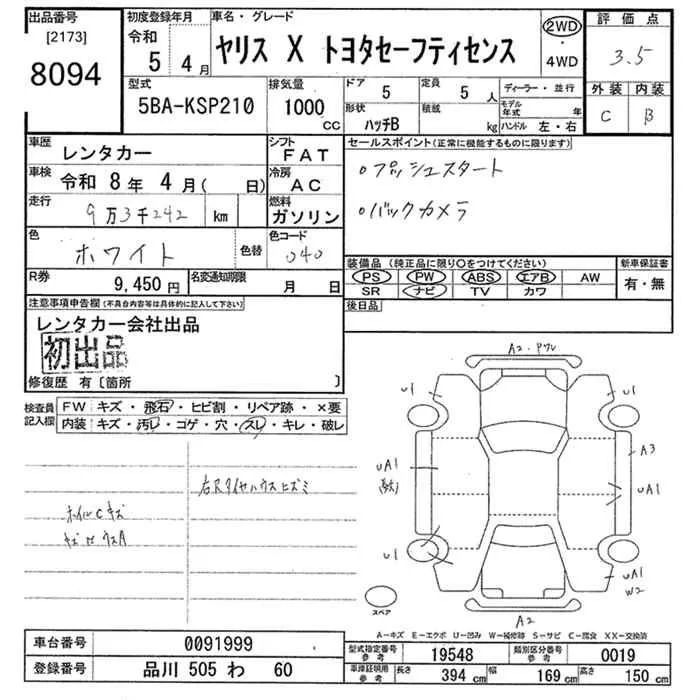 出品番号 初度登録年月 車名・グレード 評価点
[2173] 令和 ヤリス X トヨタセーフティセンス 2WD・4WD 3.5
8094 5 4月
型式 排気量 ドア 定員 ディーラー・並行 外装 内装
5BA-KSP210 1000 CC 5 5人 モデル年式 年 C B
形状 積載
ハッチB kg ハンドル 左・右
車歴 レンタカー シフト FAT セールスポイント(正常に機能するものに限ります)
車検 令和 8年 4月( 日) 冷房 AC ○プッシュスタート
走行 9万3千242 km 燃料 ガソリン ○バックカメラ
色 ホワイト 色替 色コード 040
装備品(純正品に限り○をつけてください) 新車保証書
PS PW ABS エアB AW 有・無
R券 9,450円 名変通知期限 月 日 SR ナビ TV カワ
注意事項申告欄(不具合内容等は具体的に記入して下さい) 後日品
レンタカー会社出品
初出品
修復歴 有〔箇所 〕
検査員記入欄 FW キズ・飛石・ヒビ割・リペア跡・×要
内装 キズ・汚レ・コゲ・穴・スレ・キレ・破レ
右Rタイヤハウスヒズミ
ホイルCキズ
A2・ワレ
U1 U1
A3
UA1 UA1
U1 UA1
W2
スペア
A2
A-キズ E-エクボ U-凹み W-補修跡 S-サビ C-腐食 XX-交換済
車台番号 0091999 型式指定番号 参考 19548 類別区分番号 参考 0019
登録番号 品川 505 わ 60 車庫証明用 参考 長さ 394 cm 幅 169 cm 高さ 150 cm